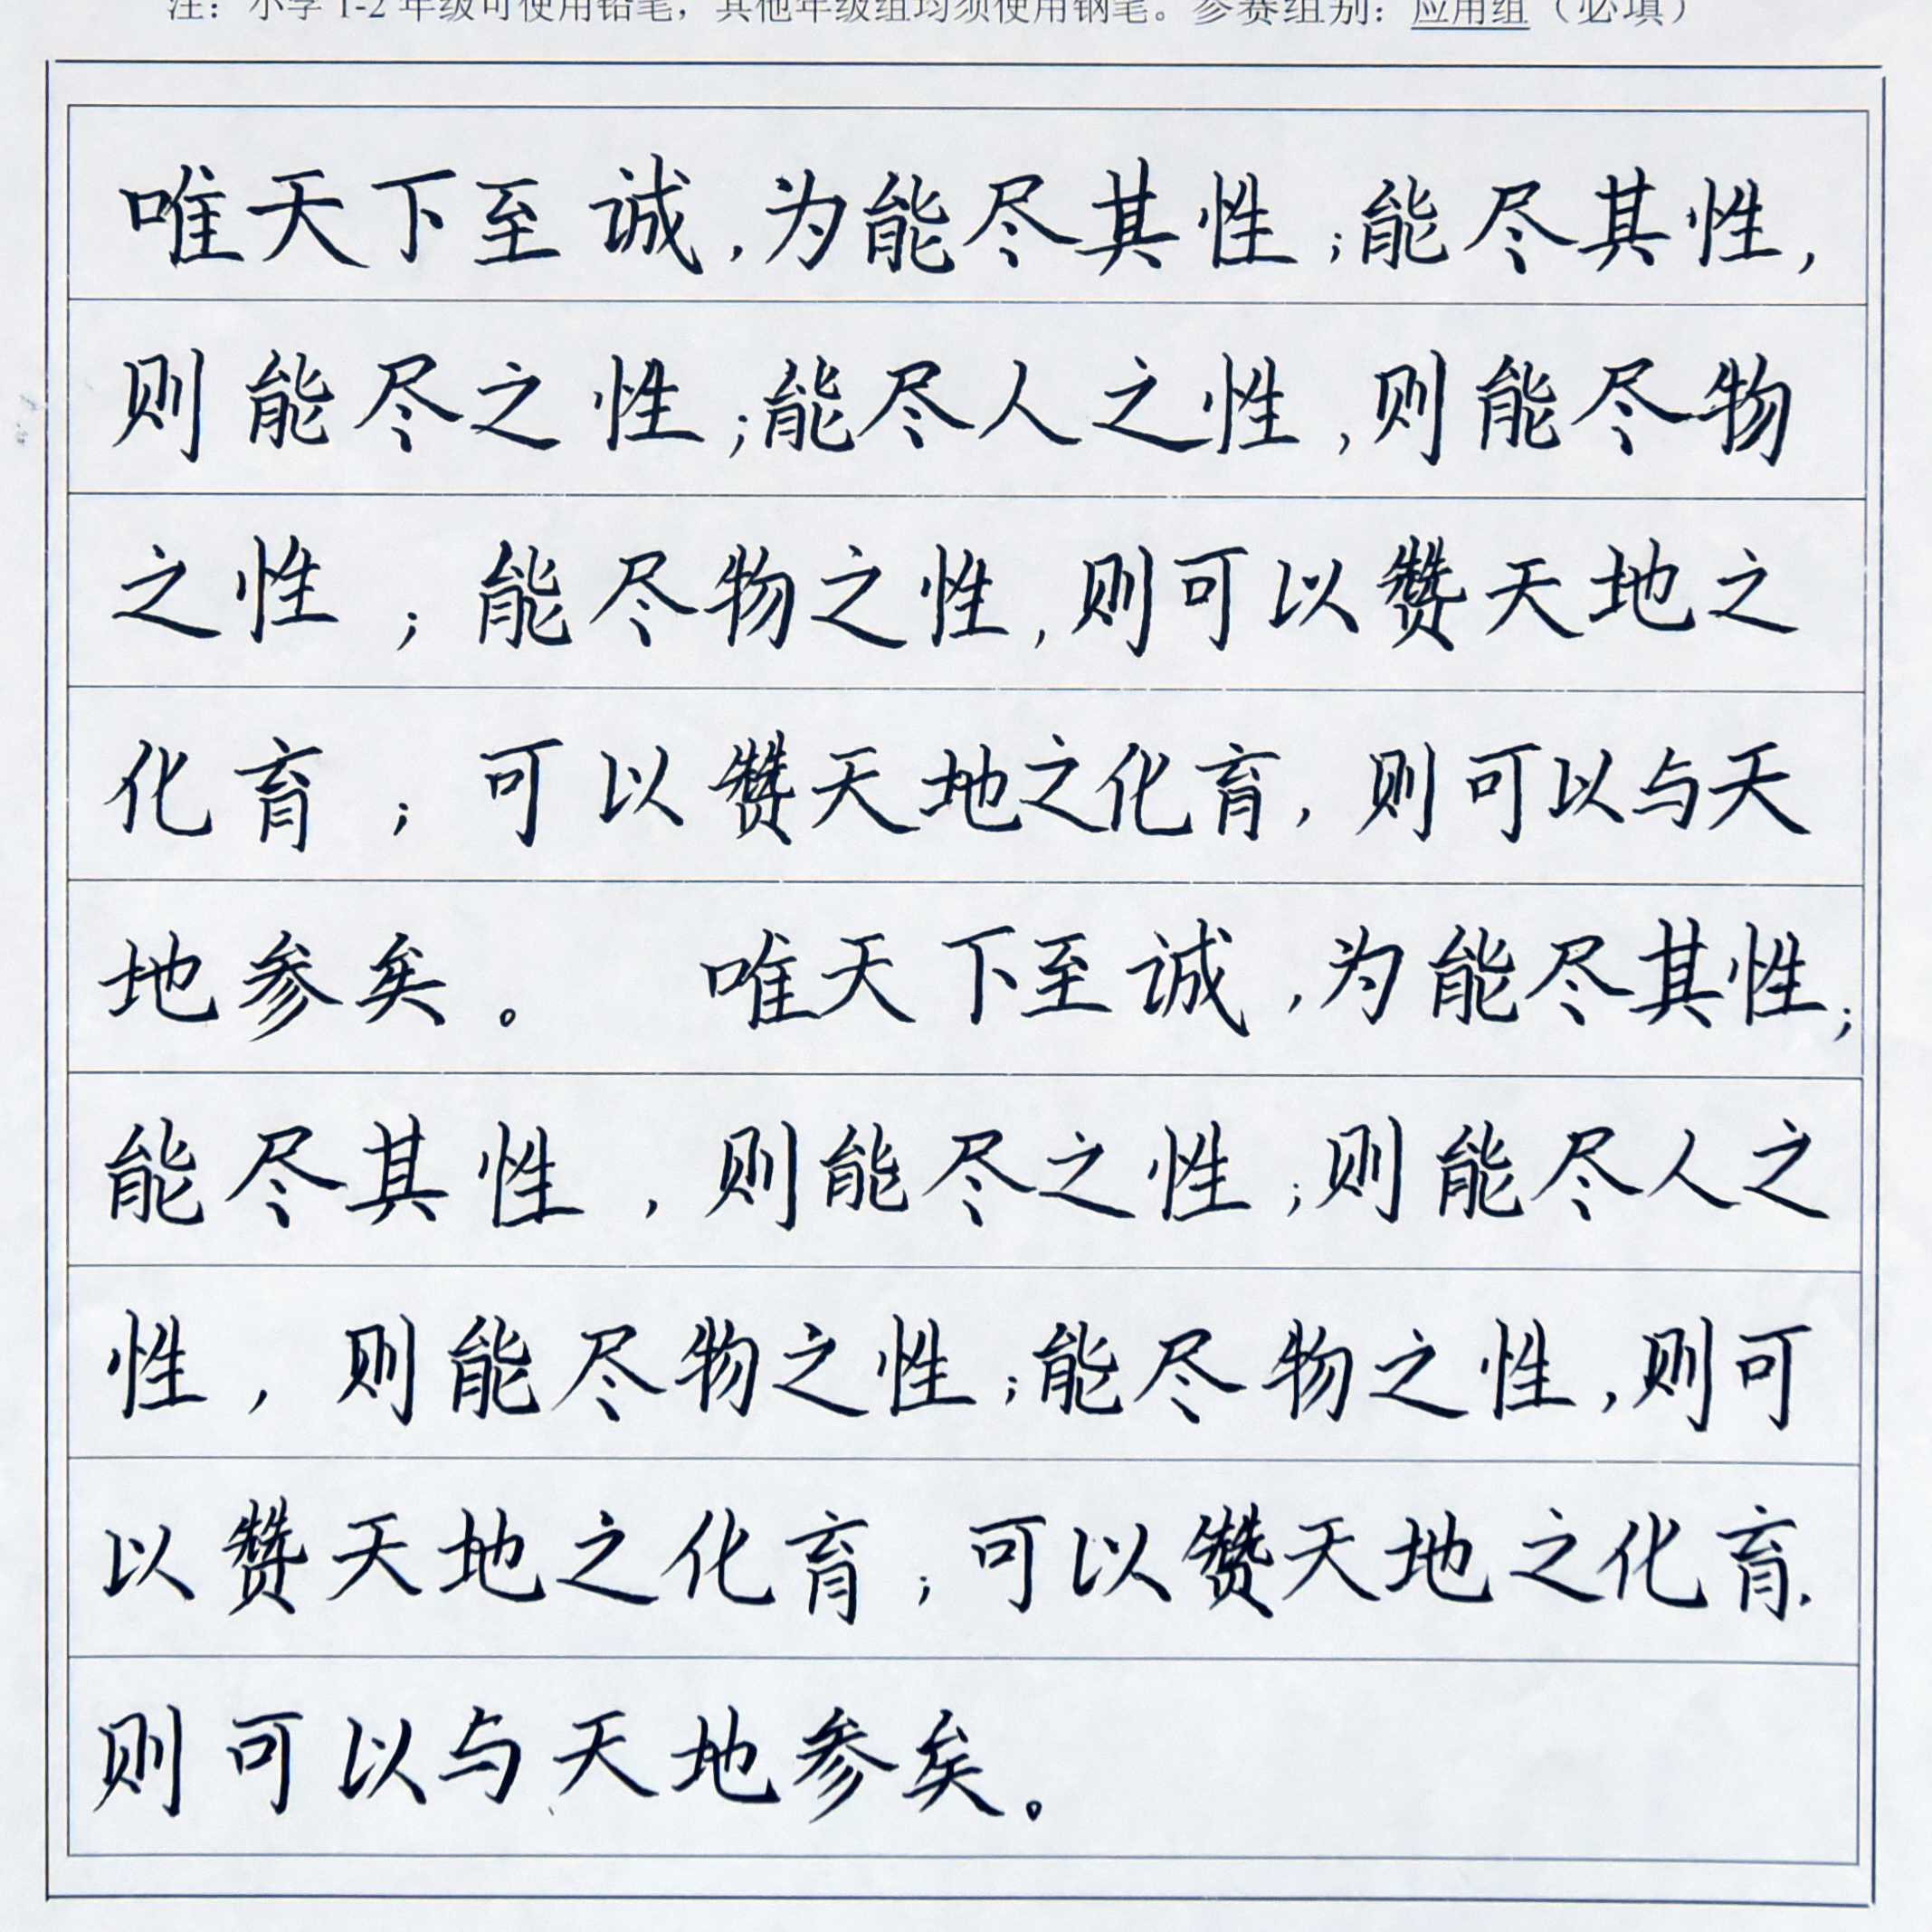 注：小学1-2年级可使用铅笔，其他年级组均须使用钢笔。参赛组别：应用组（必填）
唯天下至诚，为能尽其性；能尽其性，
则能尽之性；能尽人之性，则能尽物
之性；能尽物之性，则可以赞天地之
化育；可以赞天地之化育，则可以与天
地参矣。 唯天下至诚，为能尽其性；
能尽其性，则能尽之性；则能尽人之
性，则能尽物之性；能尽物之性，则可
以赞天地之化育；可以赞天地之化育.
则可以与天地参矣。